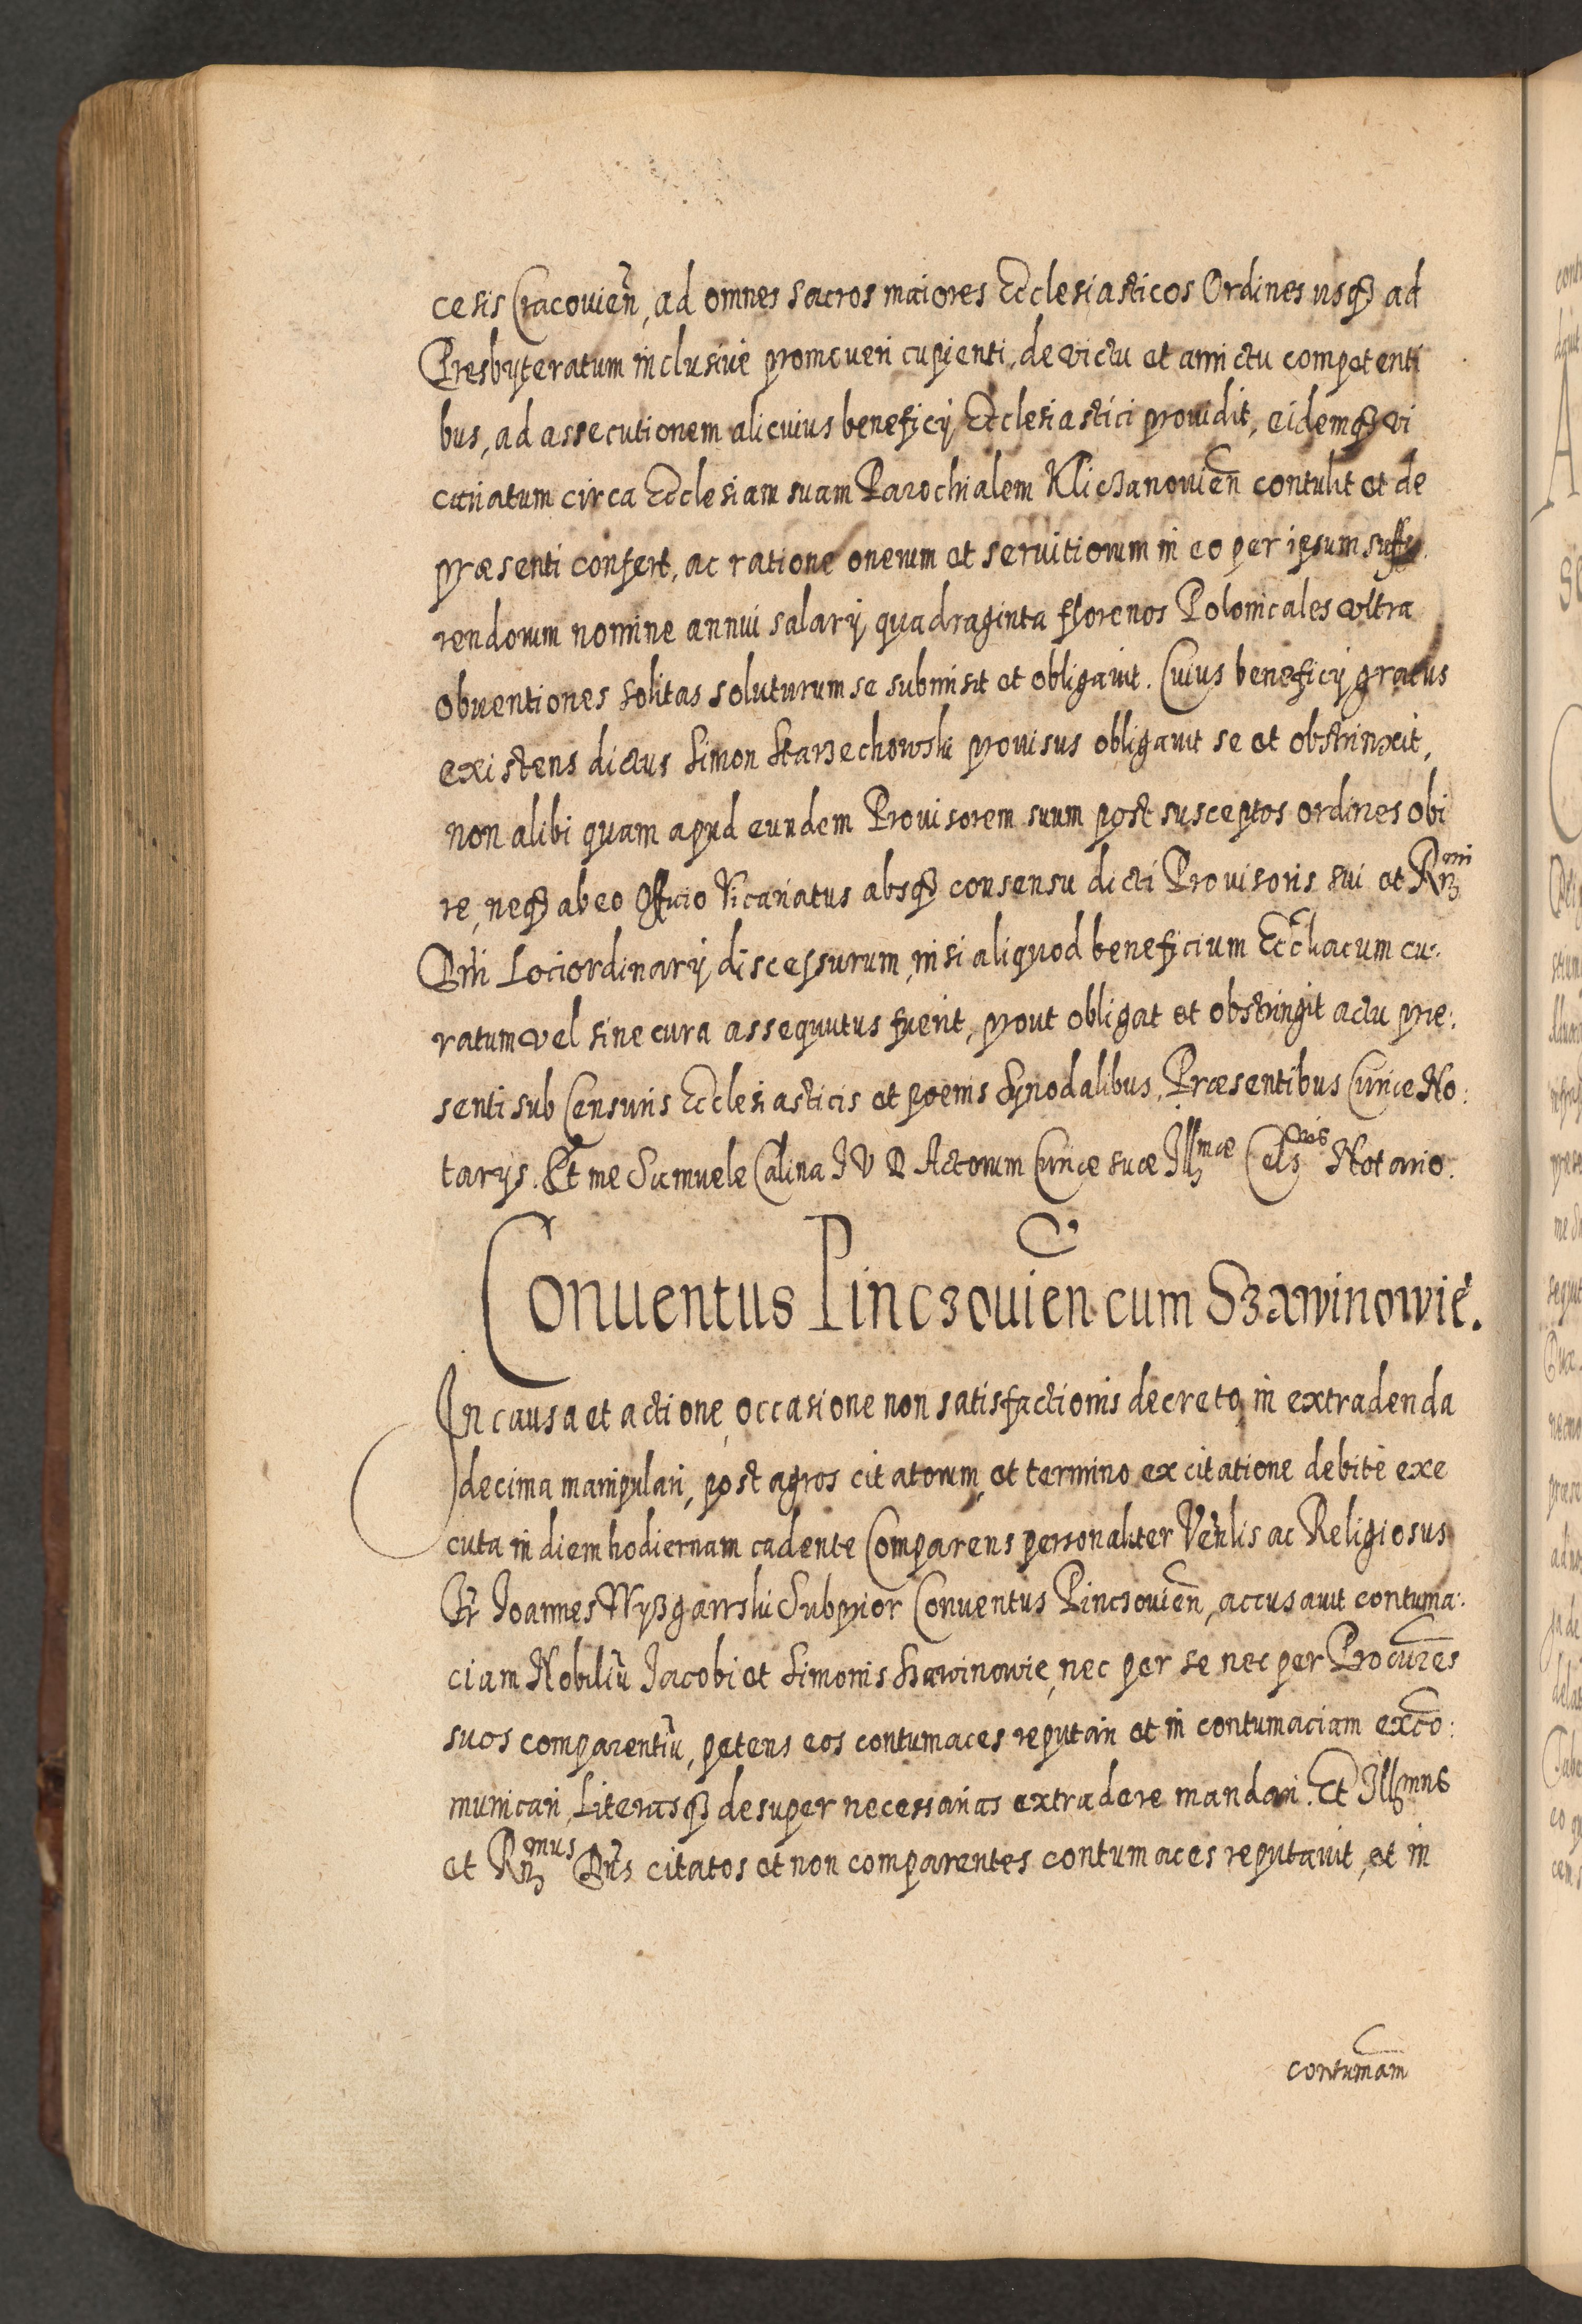 cesis Cracovien̄, ad omnes sacros maiores Ecclesiasticos Ordines usq₃ ad
Presbyteratum inclusiuè promoueri cupienti, de victu et amictu competenti
bus, ad assecutionem alicuius beneficij Ecclesiastici prouidit, eidemq₃ vi
cariatum circa Ecclesiam suam Parochialem Kliczanouien̄ contulit et de
præsenti confert, ac ratione onerum et seruitiorum in eo per ipsum suffe.
rendorum nomine annui salarij quadraginta florenos Polonicales vltra
obuentiones solitas soluturum se submisit et obligauit. Cuius beneficij gratus
existens dictus Simon Skarzechowski prouisus obligauit se et obstrinxit,
non alibi quam apud eundem Prouisorem suum post susceptos ordines obi
re, neq₃ ab eo Officio Vicariatus absq₃ consensu dicti Prouisoris sui et Rn₃mi
Dn̄i Lociordinarij discessurum, nisi aliquod beneficium Ecc̄liacum cu:
ratum vel sine cura assequutus fuerit, prout obligat et obstringit actu præ:
senti sub Censuris Ecclesiasticis et pœnis Synodalibus, Præsentibus Curiæ No:
tarijs. Et me Samuele Calina I V D Actorum Curiæ suæ Ill₃mæ Cels₃nis Notario.
Conuentus Pinczouien̄ cum Szawinowie.
In causa et actione occasione non satisfactionis decreto, in extradenda
decima manipulari, post agros citatorum, et termino ex citatione debitè exe
cuta in diem hodiernam cadente Comparens personaliter Ven̄lis ac Religiosus
Fr̄ Joannes Wyszgarrski Subprior Conuentus Pinczouien̄, accusauit contuma:
ciam Nobiliū Jacobi et Simonis Szawinowie, nec per se nec per Procur̄es
suos comparentiū, petens eos contumaces reputari et in contumaciam exc̄o:
municari, Literasq₃ desuper necessarias extradere mandari. Et Ill₃mus
et Rn₃mus Dn̄s citatos et non comparentes contumaces reputauit, et in
contumam̄